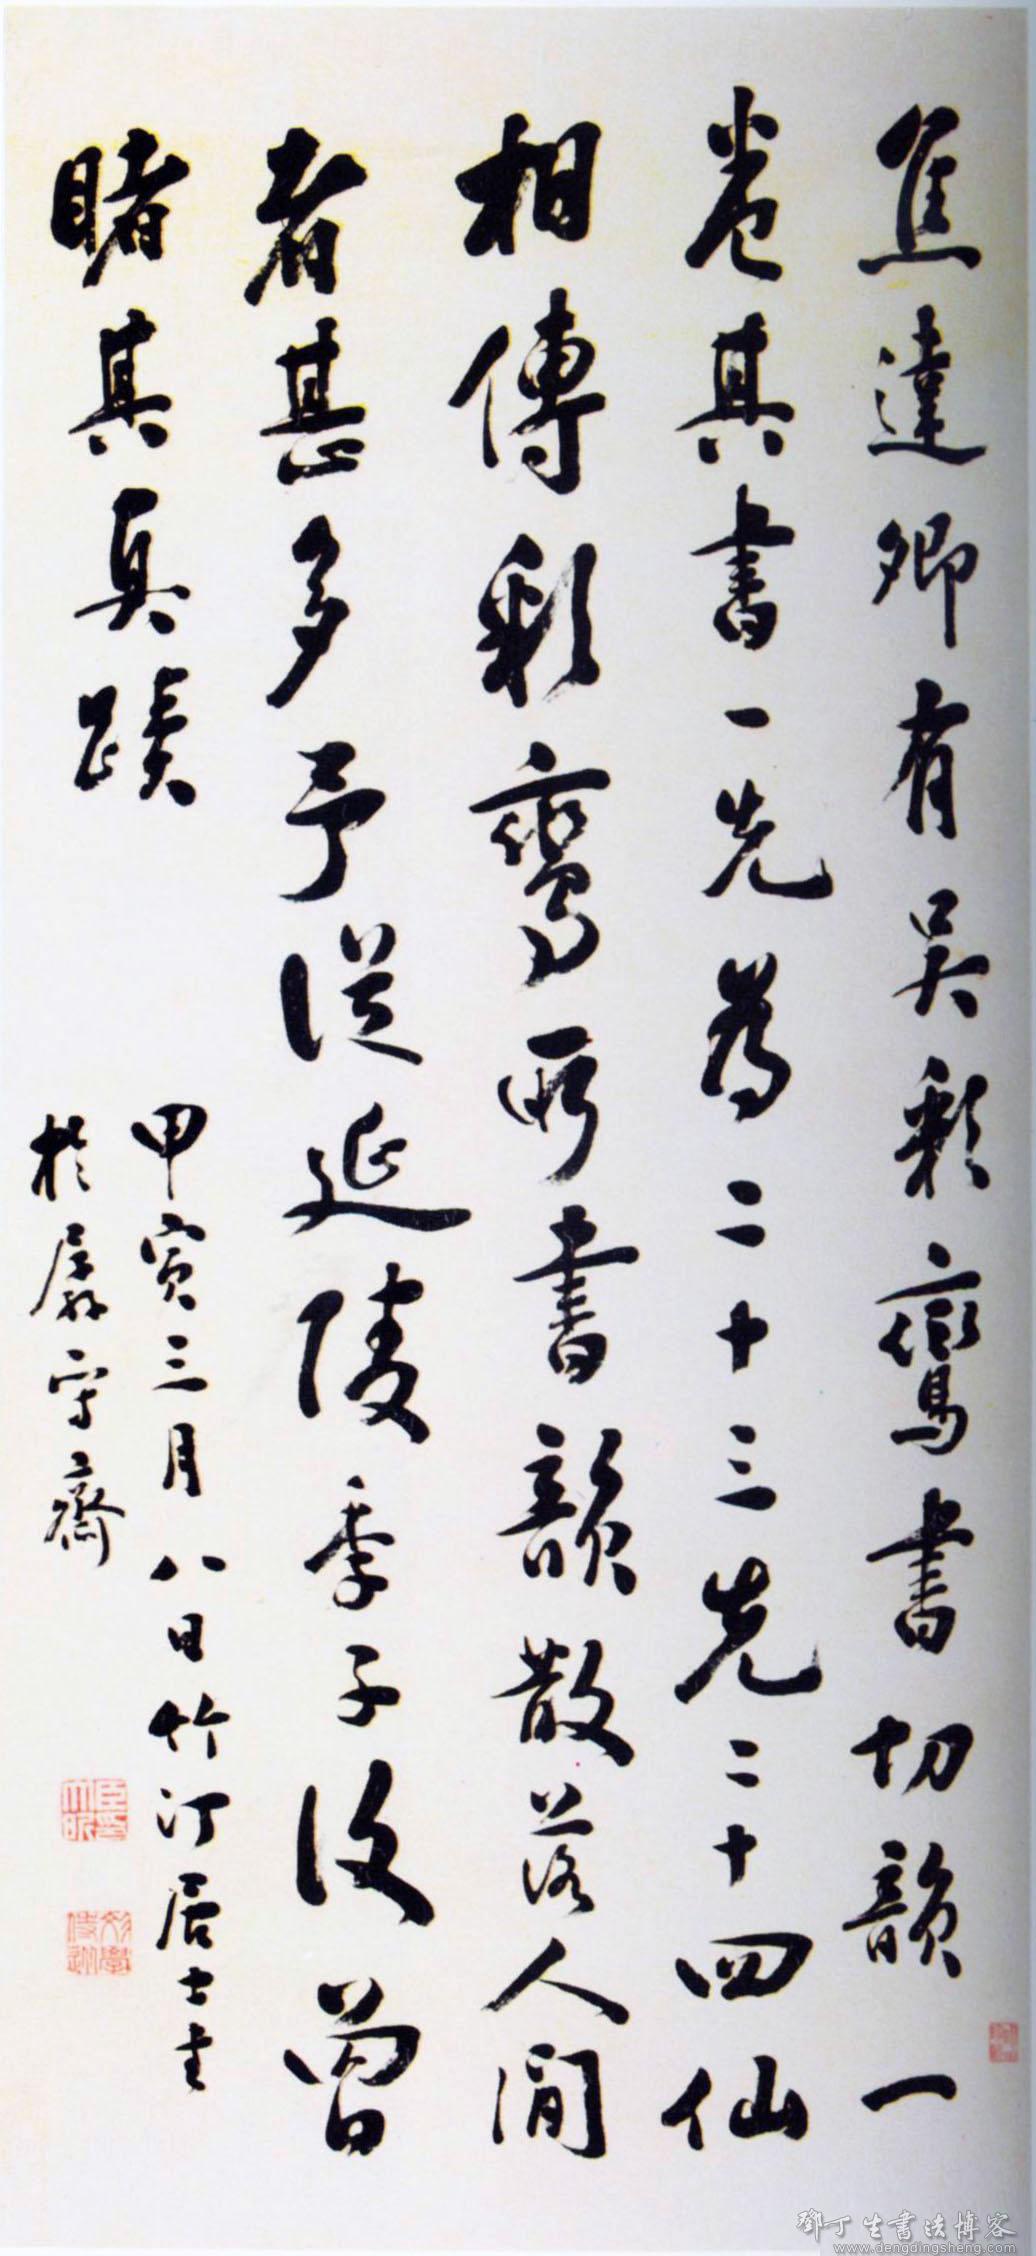 焦達卿有吳彩鸞書切韻一
卷其書一先為二十三先二十四仙
相傳彩鸞所書韻散落人間
者甚多予從延陵季子後曾
睹其真蹟
甲寅三月八日竹汀居士書
於孱守齋
鄧丁生書法博客
www.dengdingsheng.com